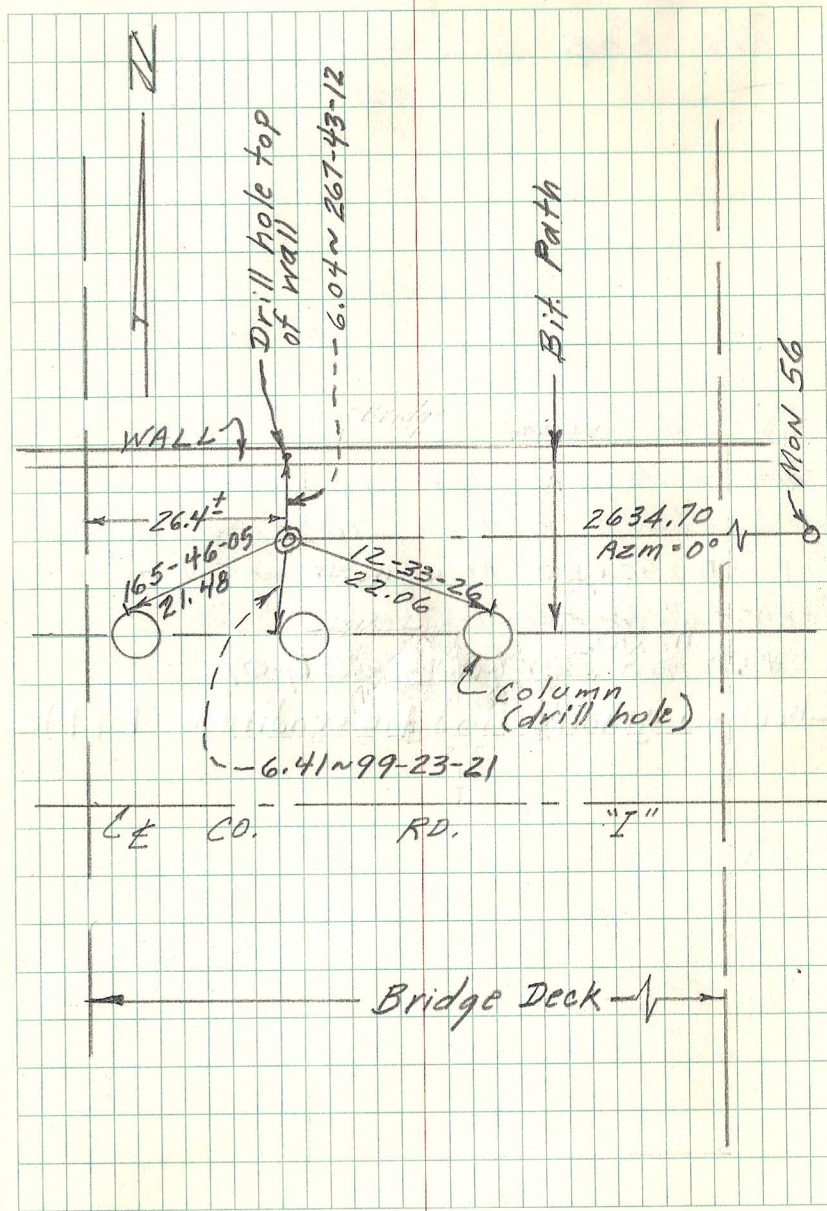 N
Drill hole top
of wall
6.04~267-43-12
Bit. Path
MON 56
WALL
26.4±
2634.70
Azm=0°
165-46-05
21.48
12-33-26
22.06
column
(drill hole)
6.41~99-23-21
℄ CO. RD. "I"
Bridge Deck